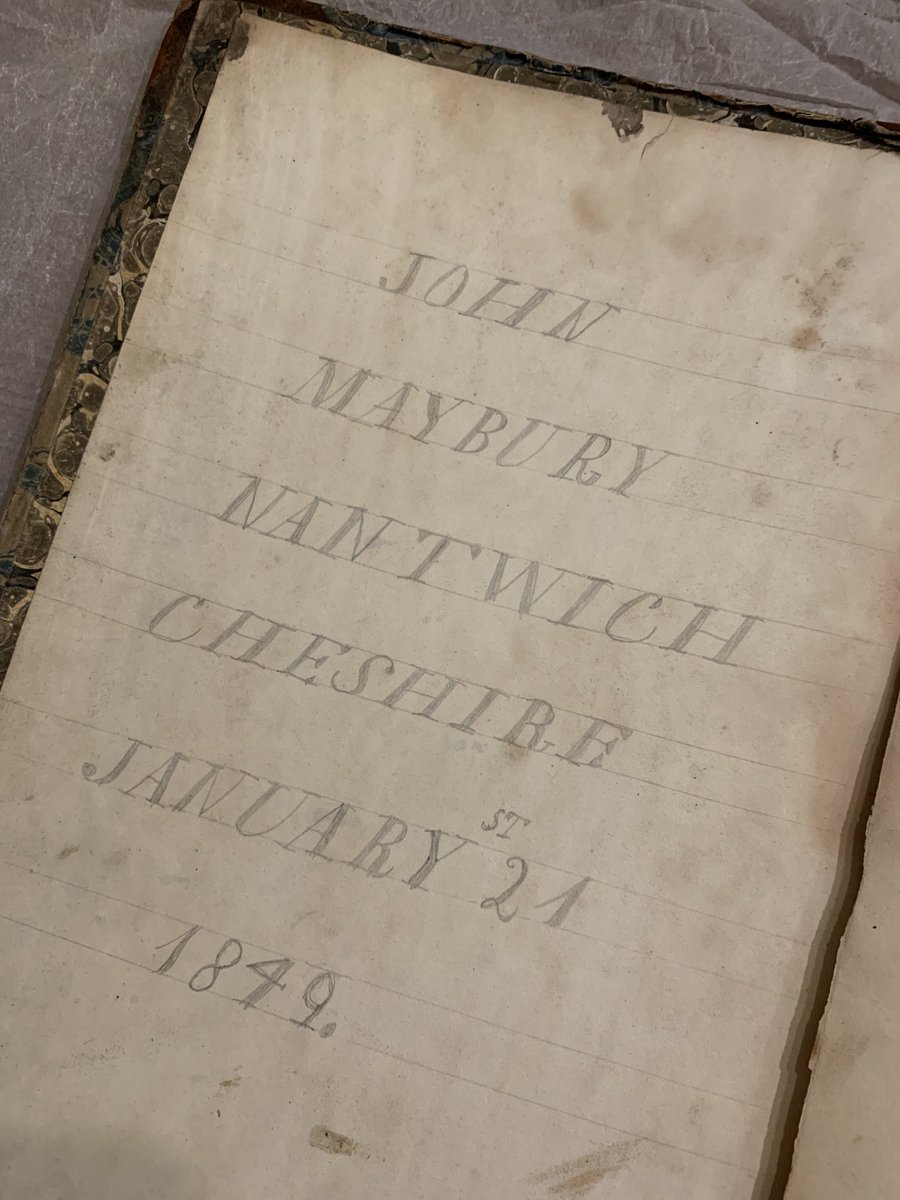 JOHN
MAYBURY
NANTWICH
CHESHIRE
JANUARY 21ST
1849.